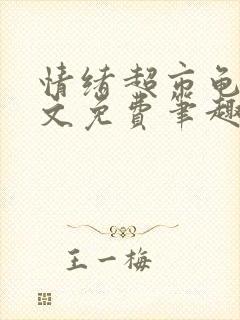 情绪超市龟
文免费笔趣
王一梅